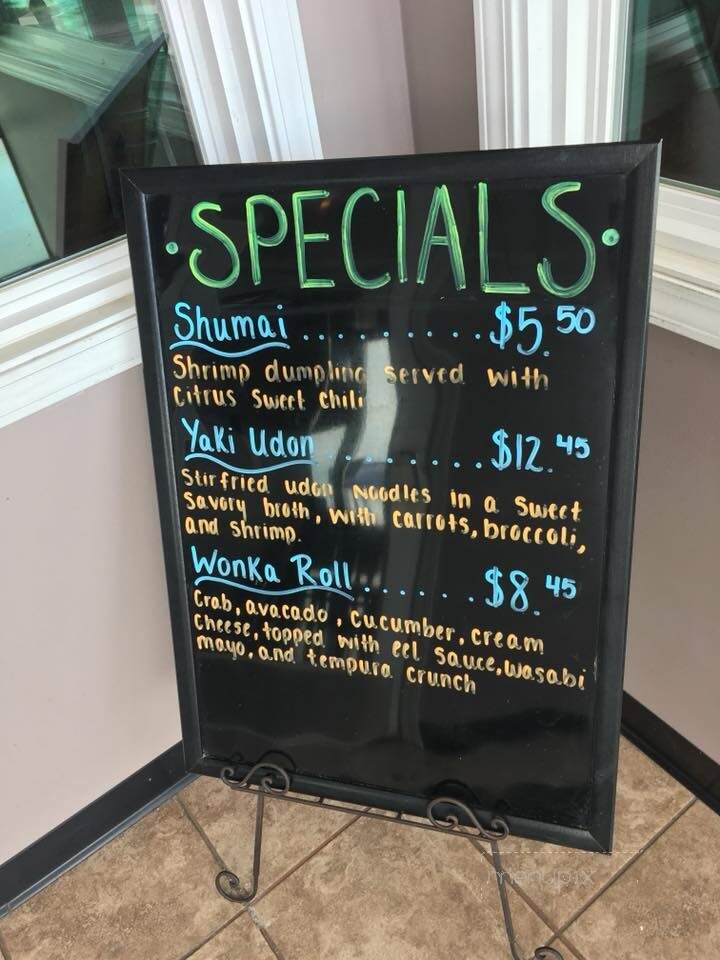 ·SPECIALS·
Shumai .......... $5.50
Shrimp dumpling served with
citrus sweet chili
Yaki Udon ......... $12.45
Stirfried udon noodles in a sweet
savory broth, with carrots, broccoli,
and shrimp.
Wonka Roll ....... $8.45
Crab, avacado, cucumber, cream
cheese, topped with eel sauce, wasabi
mayo, and tempura crunch
menupix